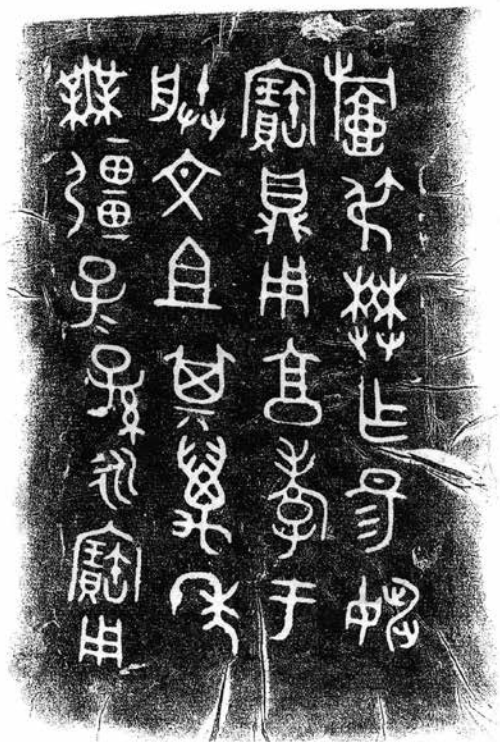 乍
寶鼎用享孝于
朕文且其萬年
無彊子孫永寶用